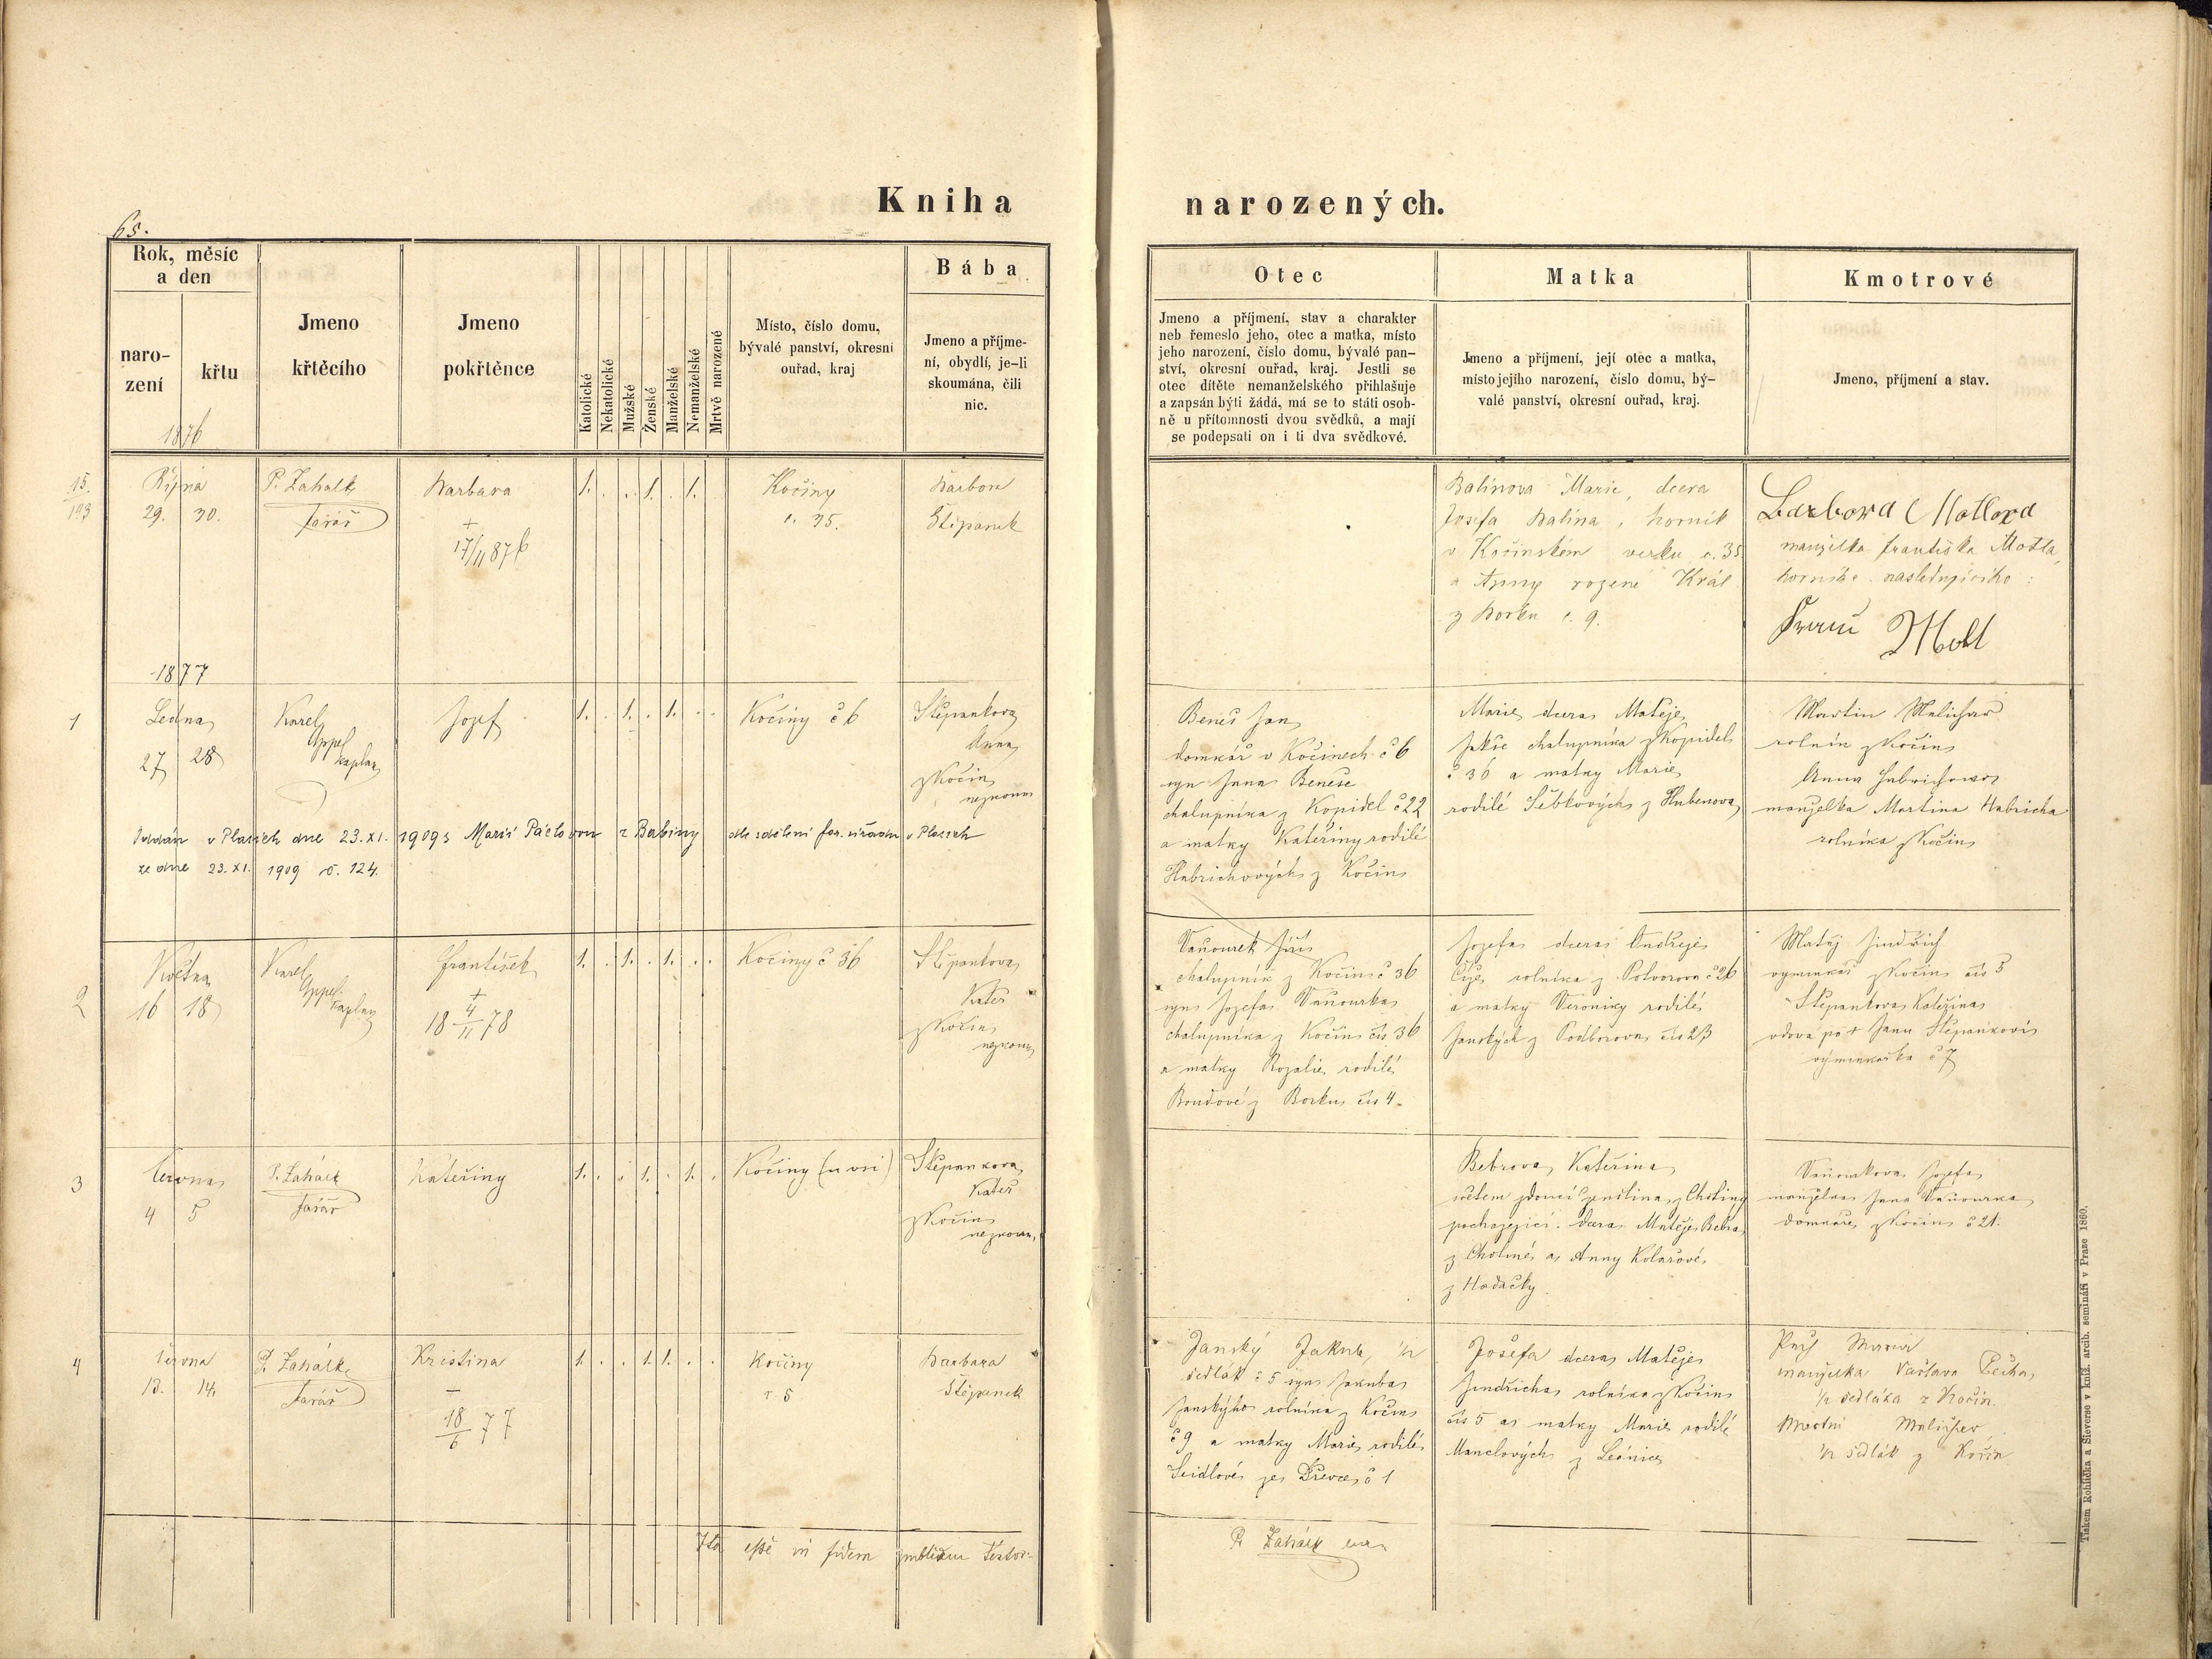 65.
Kniha narozených.
Rok, měsíc
a den
naro-
zení
křtu
1876
Jmeno
křtěcího
Jmeno
pokřtěnce
Katolické
Nekatolické
Mužské
Ženské
Manželské
Nemanželské
Mrtvě narozené
Místo, číslo domu,
bývalé panství, okresní
ouřad, kraj
Bába
Jmeno a příjme-
ní, obydlí, je-li
skoumána, čili
nic.
Otec
Jmeno a příjmení, stav a charakter
neb řemeslo jeho, otec a matka, místo
jeho narození, číslo domu, bývalé pan-
ství, okresní ouřad, kraj. Jestli se
otec dítěte nemanželského přihlašuje
a zapsán býti žádá, má se to státi osob-
ně u přítomnosti dvou svědků, a mají
se podepsati on i ti dva svědkové.
Matka
Jmeno a příjmení, její otec a matka,
místo jejího narození, číslo domu, bý-
valé panství, okresní ouřad, kraj.
Kmotrové
Jmeno, příjmení a stav.
15.
193
Října
29. 30.
P. Zahálk
farář
Barbara
+
17/11 876
1. . . . 1. . 1.
Kočiny
č. 35.
Barbora
Štěpanek
Balínova Marie, dcera
Josefa Balína, horník
v Kočinském verku č. 35
a Anny rozené Král
z Borku č. 9.
Barbora Motlova
manželka Františka Motla,
horníka následujícího:
Franz Motl
1877
1
Ledna
27 28
Karel
Appel
kaplan
Jozef
1. . 1. . 1. . .
Kočiny č 6
Štěpankova
Anna
z Kočin
nezkoum
Beneš Jan
domkář v Kočinech č 6
syn Jana Beneše
chalupníka z Kopidel č 22
a matky Kateřiny rodilé
Hubrichových z Kočin
Marie dcera Matěje
Jakše chalupníka z Kopidel
č 36 a matky Marie
rodilé Šibkových z Hubenova
Martin Melichar
rolník z Kočin
Anna Hubrichova
manželka Martina Hubricha
rolníka z Kočin
Oddán v Plasích dne 23.XI. 1909 s Marií Páclovou z Babiny dle sdělení far. úřadu v Plasích
ze dne 23.XI. 1909 č. 124.
2
Května
16 18
Karel
Appel
kaplan
František
+
18 4/11 78
1. . 1. . 1. . .
Kočiny č 36
Štěpankova
Kateř
z Kočin
nezkoum
Vaňourek Jiří
chalupník z Kočin č 36
syn Jozefa Vaňourka
chalupníka z Kočin čís 36
a matky Rozalie rodilé
Boudové z Borku čís 4.
Jozefa dcera Ondřeje
rolníka z Potvorova č 26
a matky Veroniky rodilé
Janských z Podborova čís 23
Matěj Jindřich
vyminkář z Kočin čís 3
Štěpankova Kateřina
vdova po + Janu Štěpankovi
výminkářka č 7
3
června
4 5
P. Zahálk
farář
Kateřiny
1. . . 1. . 1. .
Kočiny (u vsi)
Štěpankova
Kateř
z Kočin
nezkoum.
Bebrova Kateřina
světem jdoucí ženština z Chotiny
pocházející. dcera Matěje Bebra
z Chotiné a Anny Kolářové
z Hadačky.
Vaňourkova Jozefa
manželka Jana Vaňourka
domkáře z Kočin č 21.
4
června
13. 14.
P. Zahálk
farář
Kristina
18/6 77
1. . . 1. 1. . .
Kočiny
č. 5
Barbara
Štěpanek
Janský Jakub, ½
sedlák č 5 syn Jakuba
Janskýho rolníka z Kočin
č 9 a matky Marie rodilé
Seidlové ze Dřevce č 1
Josefa dcera Matěje
Jindřicha rolníka z Kočin
čís 5 a matky Marie rodilé
Manclových z Lednice
Maria
manželka Václava Pecha
½ sedláka z Kočin.
Martin Melichar
½ sedlák z Kočin
Ita esse in fidem publicam testor:
P. Zahálk
Tiskem Rohlíčka a Sieverse v kníž. arcib. semináři v Praze 1860.